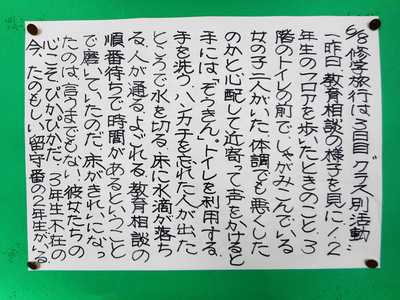 9/8 修学旅行は3日目「クラス別活動」
一昨日、教育相談の様子を見に1・2
年生のフロアを歩いたときのこと。3
階のトイレの前で、しゃがみこんでいる
女の子二人がいた。体調でも悪くした
のかと心配して近寄って声をかけると
手には「ぞうきん。トイレを利用する、
手を洗う、ハンカチを忘れた人が出た
ところで水を切る、床に水滴が落ち
る、人が通る、よごれる。教育相談の
順番待ちで時間があるということ
で磨いていたのだ。床がきれいになっ
たのは言うまでもない。彼女たちの
心こそ、ぴかぴかだ。3年生不在の
今、たのもしい留守番の2年生がいる